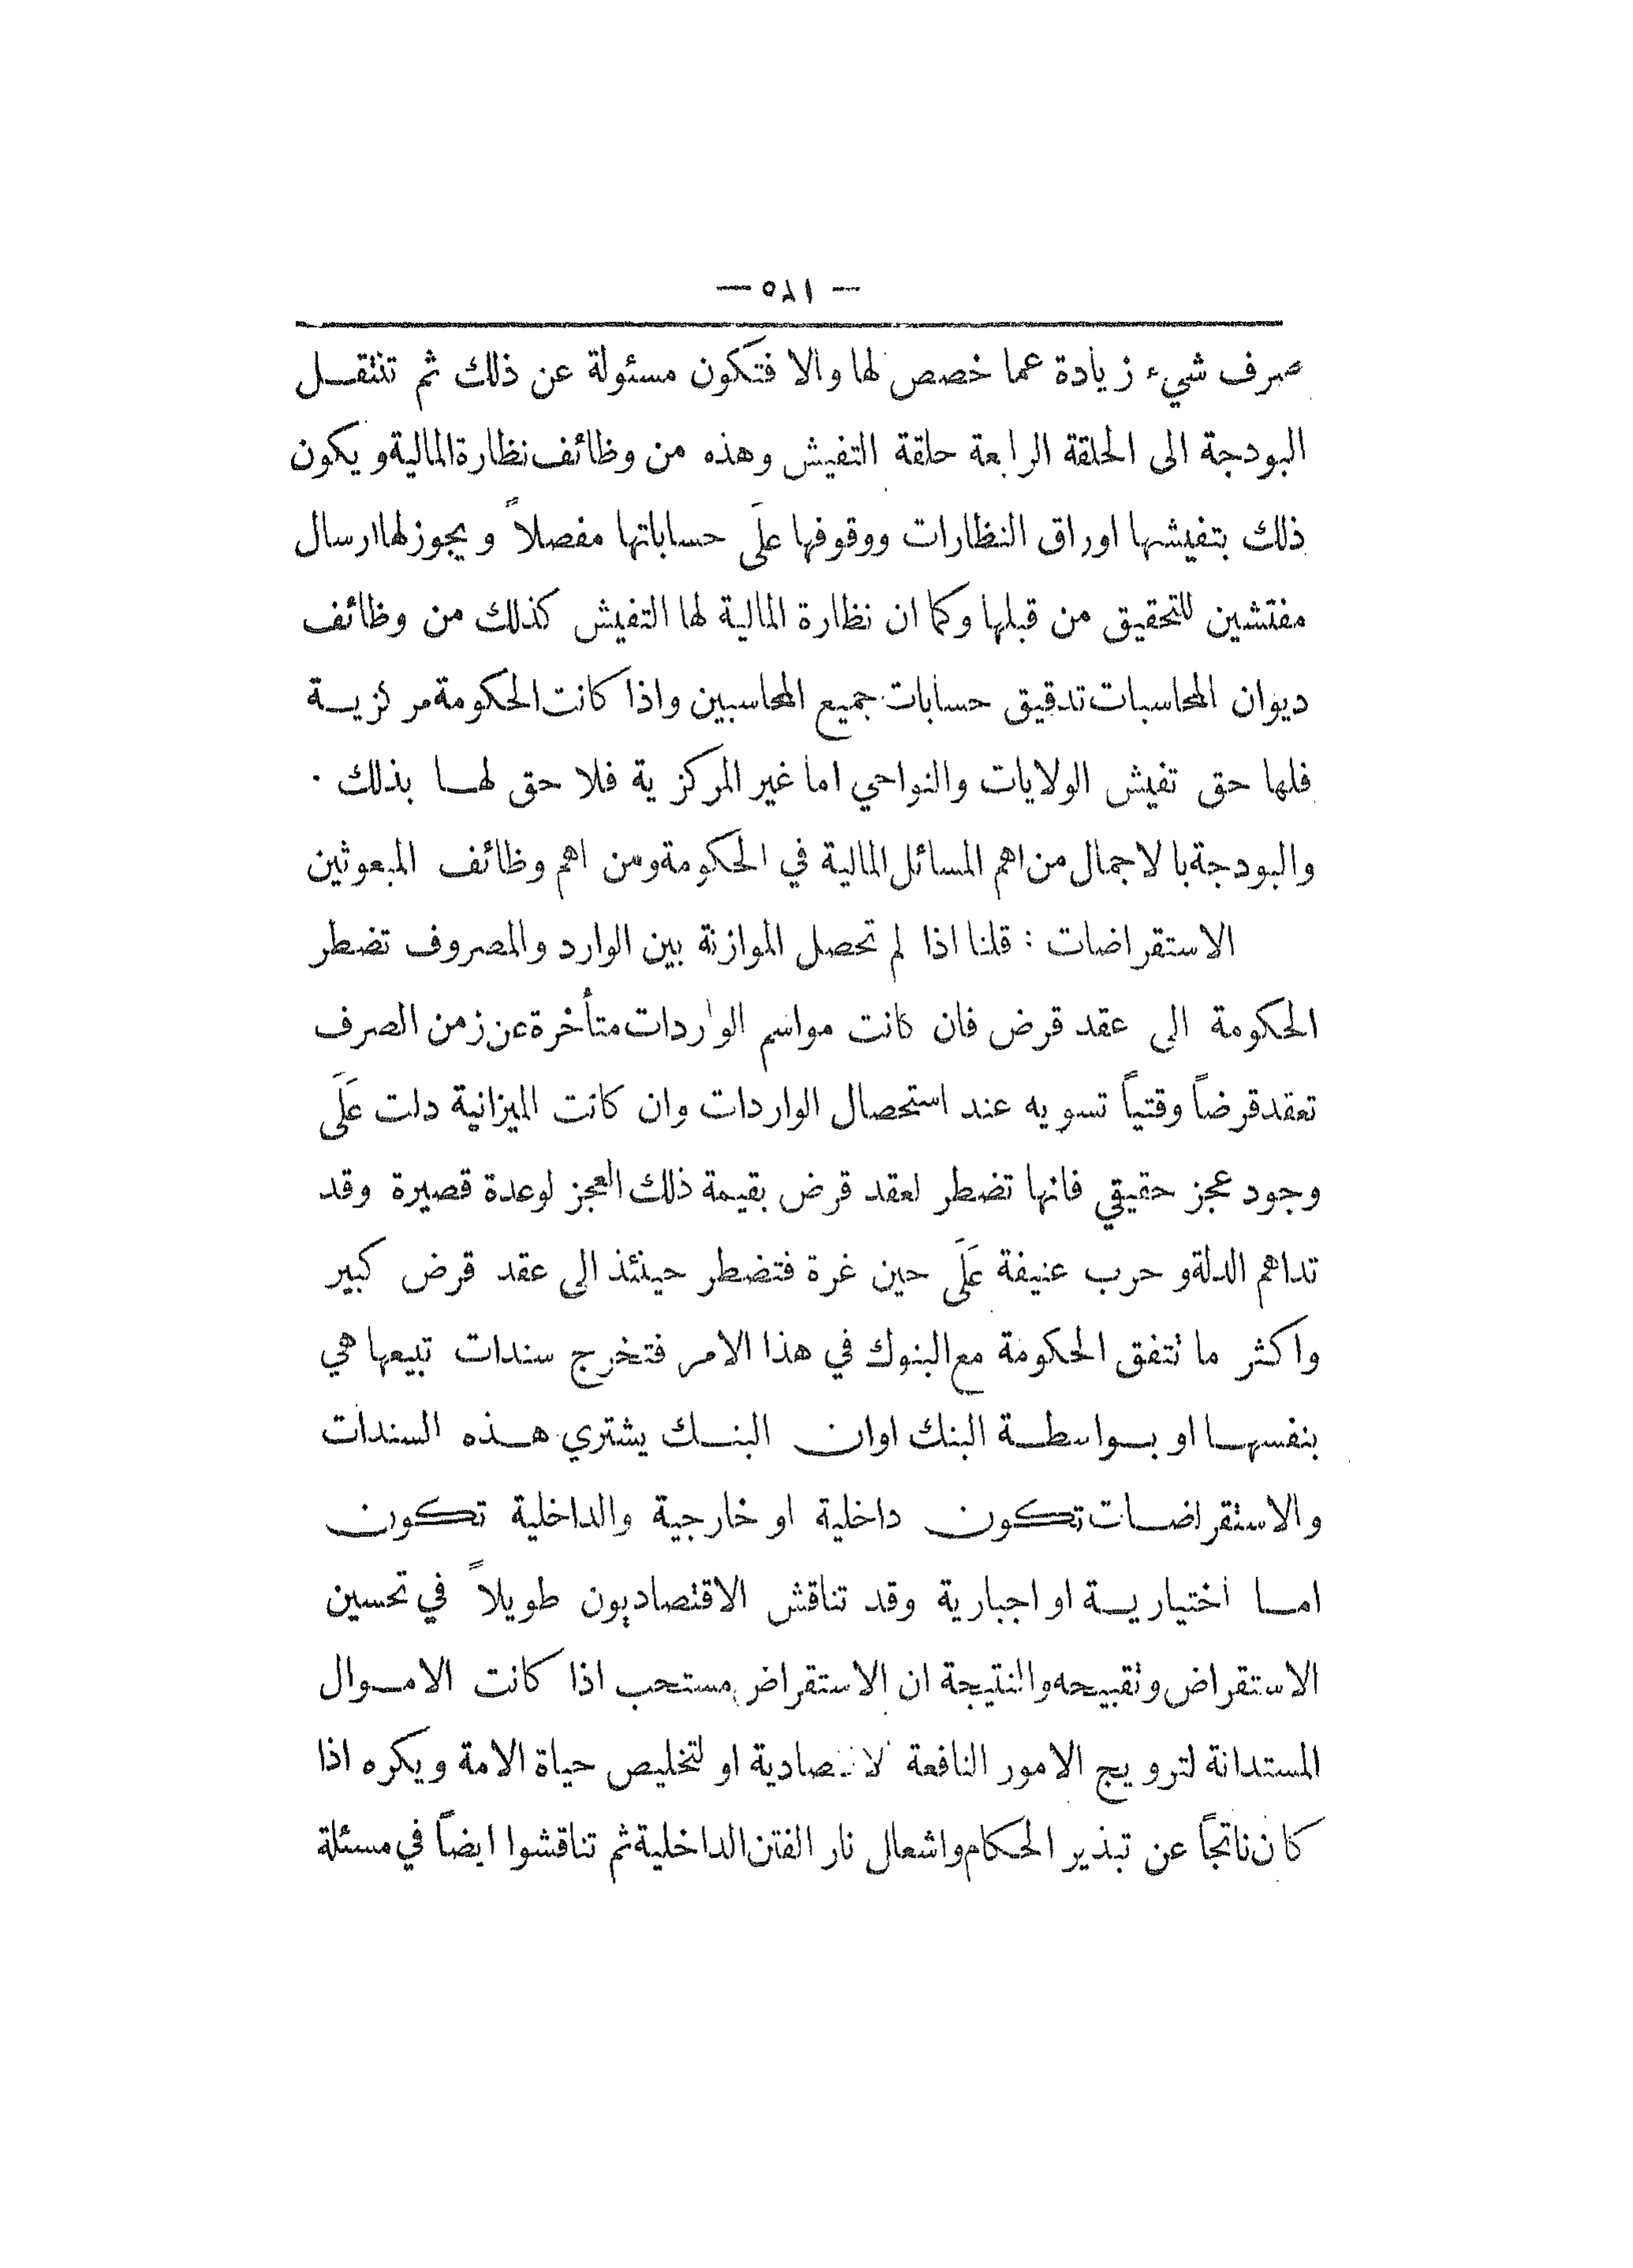 — ٥٨١ —
صرف شيء زيادة عما خصص لها والا فتكون مسئولة عن ذلك ثم تنتقل
البودجة الى الحلقة الرابعة حلقة التفيش وهذه من وظائف نظارة المالية ويكون
ذلك بتفيشها اوراق النظارات ووقوفها علَى حساباتها مفصلاً ويجوز لها ارسال
مفتشين للتحقيق من قبلها وكما ان نظارة المالية لها التفيش كذلك من وظائف
ديوان المحاسبات تدقيق حسابات جميع المحاسبين واذا كانت الحكومة مركزية
فلها حق تفيش الولايات والنواحي اما غير المركزية فلا حق لها بذلك ٠
والبودجة بالاجمال من اهم المسائل المالية في الحكومة ومن اهم وظائف المبعوثين
الاستقراضات : قلنا اذا لم تحصل الموازنة بين الوارد والمصروف تضطر
الحكومة الى عقد قرض فان كانت مواسم الواردات متأخرة عن زمن الصرف
تعقد قرضاً وقتياً تسويه عند استحصال الواردات وان كانت الميزانية دلت علَى
وجود عجز حقيقي فانها تضطر لعقد قرض بقيمة ذلك العجز لوعدة قصيرة وقد
تداهم الدلة و حرب عنيفة علَى حين غرة فتضطر حينئذ الى عقد قرض كبير
واكثر ما نتفق الحكومة مع البنوك في هذا الامر فتخرج سندات تبيعها هي
بنفسها او بواسطة البنك اوان البنك يشتري هذه السندات
والاستقراضات تكون داخلية او خارجية والداخلية تكون
اما اختيارية او اجبارية وقد تناقش الاقتصاديون طويلاً في تحسين
الاستقراض ونقبيحه والنتيجة ان الاستقراض مستحب اذا كانت الاموال
المستدانة لترويج الامور النافعة او لتخليص حياة الامة ويكره اذا
كان ناتجاً عن تبذير الحكام واشعال نار الفتن الداخلية ثم تناقشوا ايضاً في مسئلة